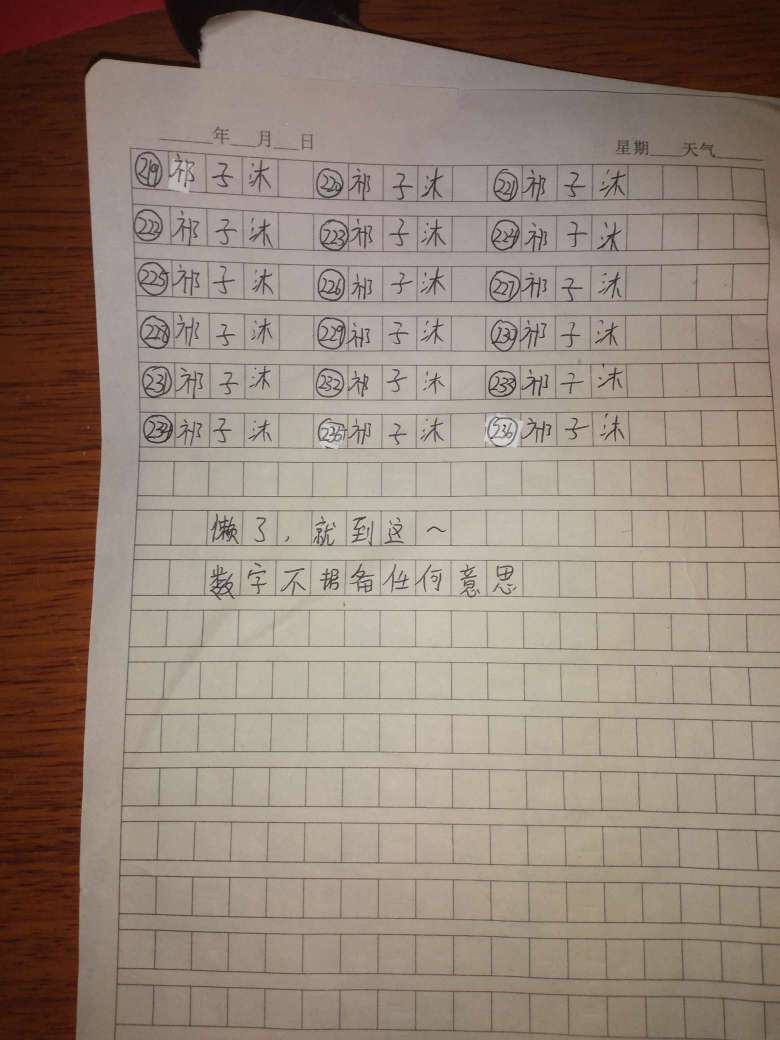 年 月 日 星期 天气
219 祁子沐 220 祁子沐 221 祁子沐
222 祁子沐 223 祁子沐 224 祁子沐
225 祁子沐 226 祁子沐 227 祁子沐
228 祁子沐 229 祁子沐 230 祁子沐
231 祁子沐 232 祁子沐 233 祁子沐
234 祁子沐 235 祁子沐 236 祁子沐
懒了，就到这～
数字不据备任何意思